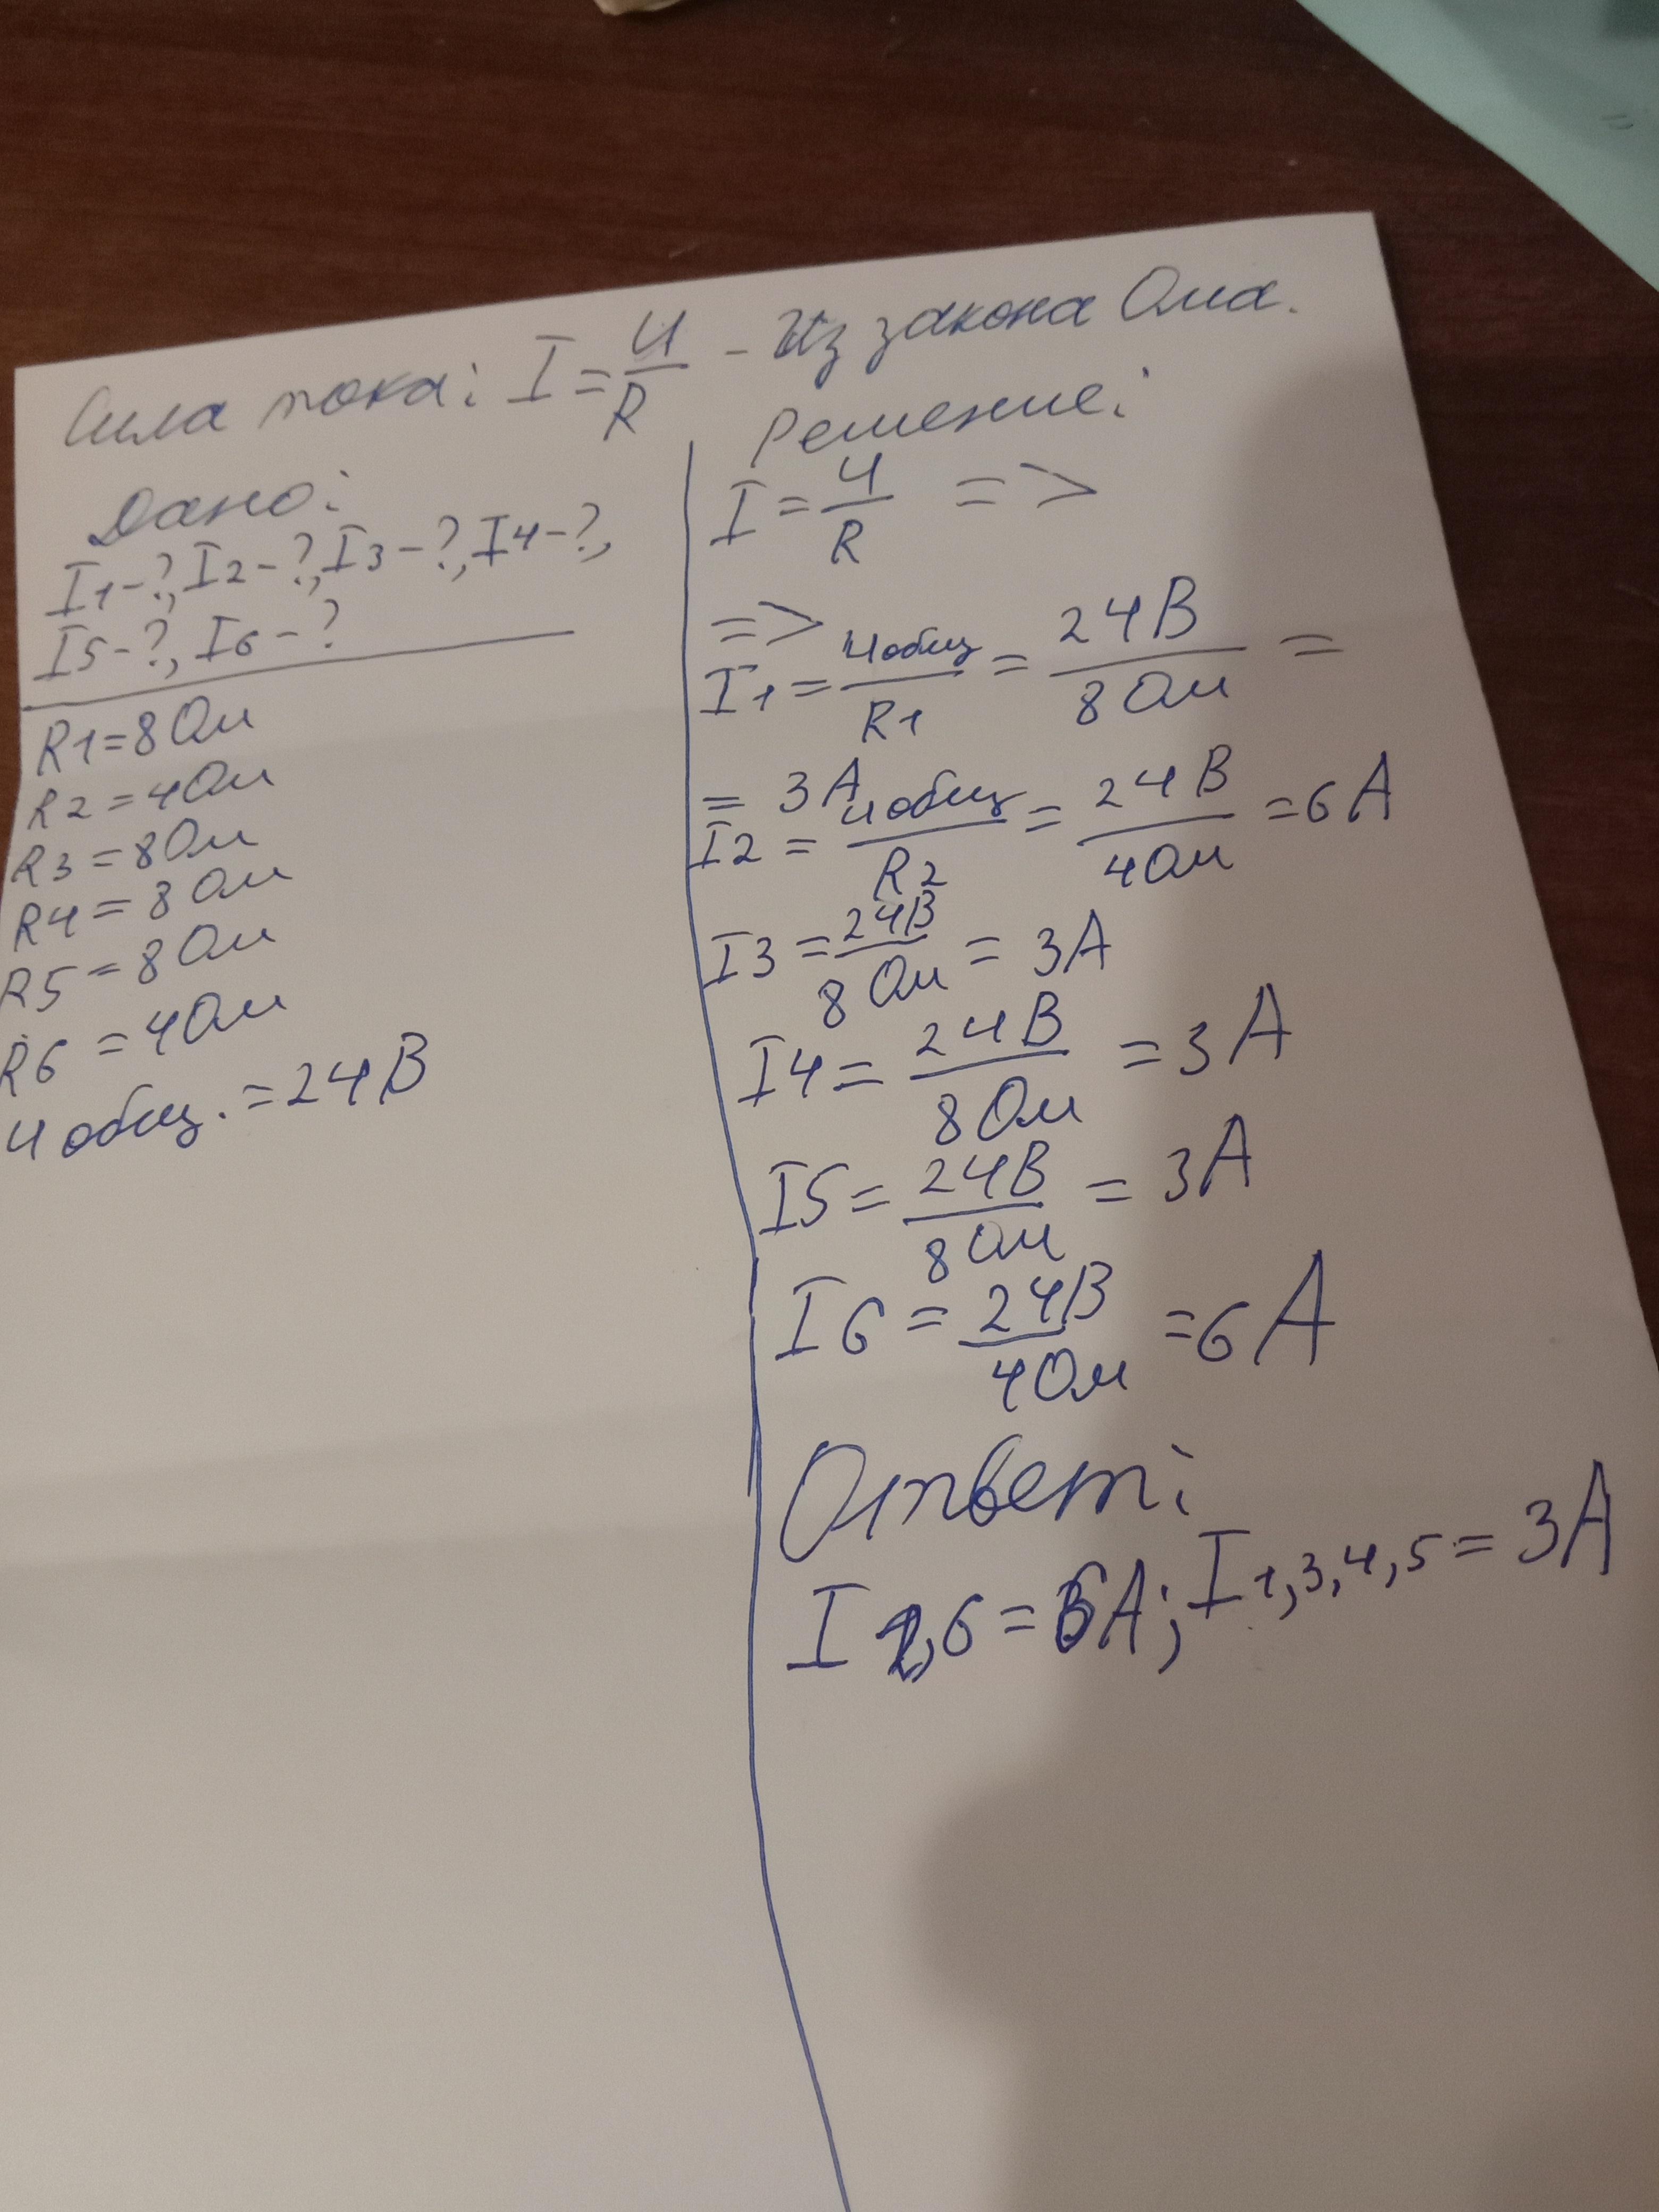 Сила тока: I = U/R - Из закона Ома.
Дано:
I1-?, I2-?, I3-?, I4-?,
I5-?, I6-?
R1=8 Ом
R2=4 Ом
R3=8 Ом
R4=8 Ом
R5=8 Ом
R6=4 Ом
U общ.=24 В
Решение:
I = U/R =>
=>
I1 = U общ/R1 = 24 В/8 Ом =
= 3 А
I2 = U общ/R2 = 24 В/4 Ом = 6 А
I3 = 24 В/8 Ом = 3 А
I4 = 24 В/8 Ом = 3 А
I5 = 24 В/8 Ом = 3 А
I6 = 24 В/4 Ом = 6 А
Ответ:
I 2,6 = 6 А; I 1,3,4,5 = 3 А